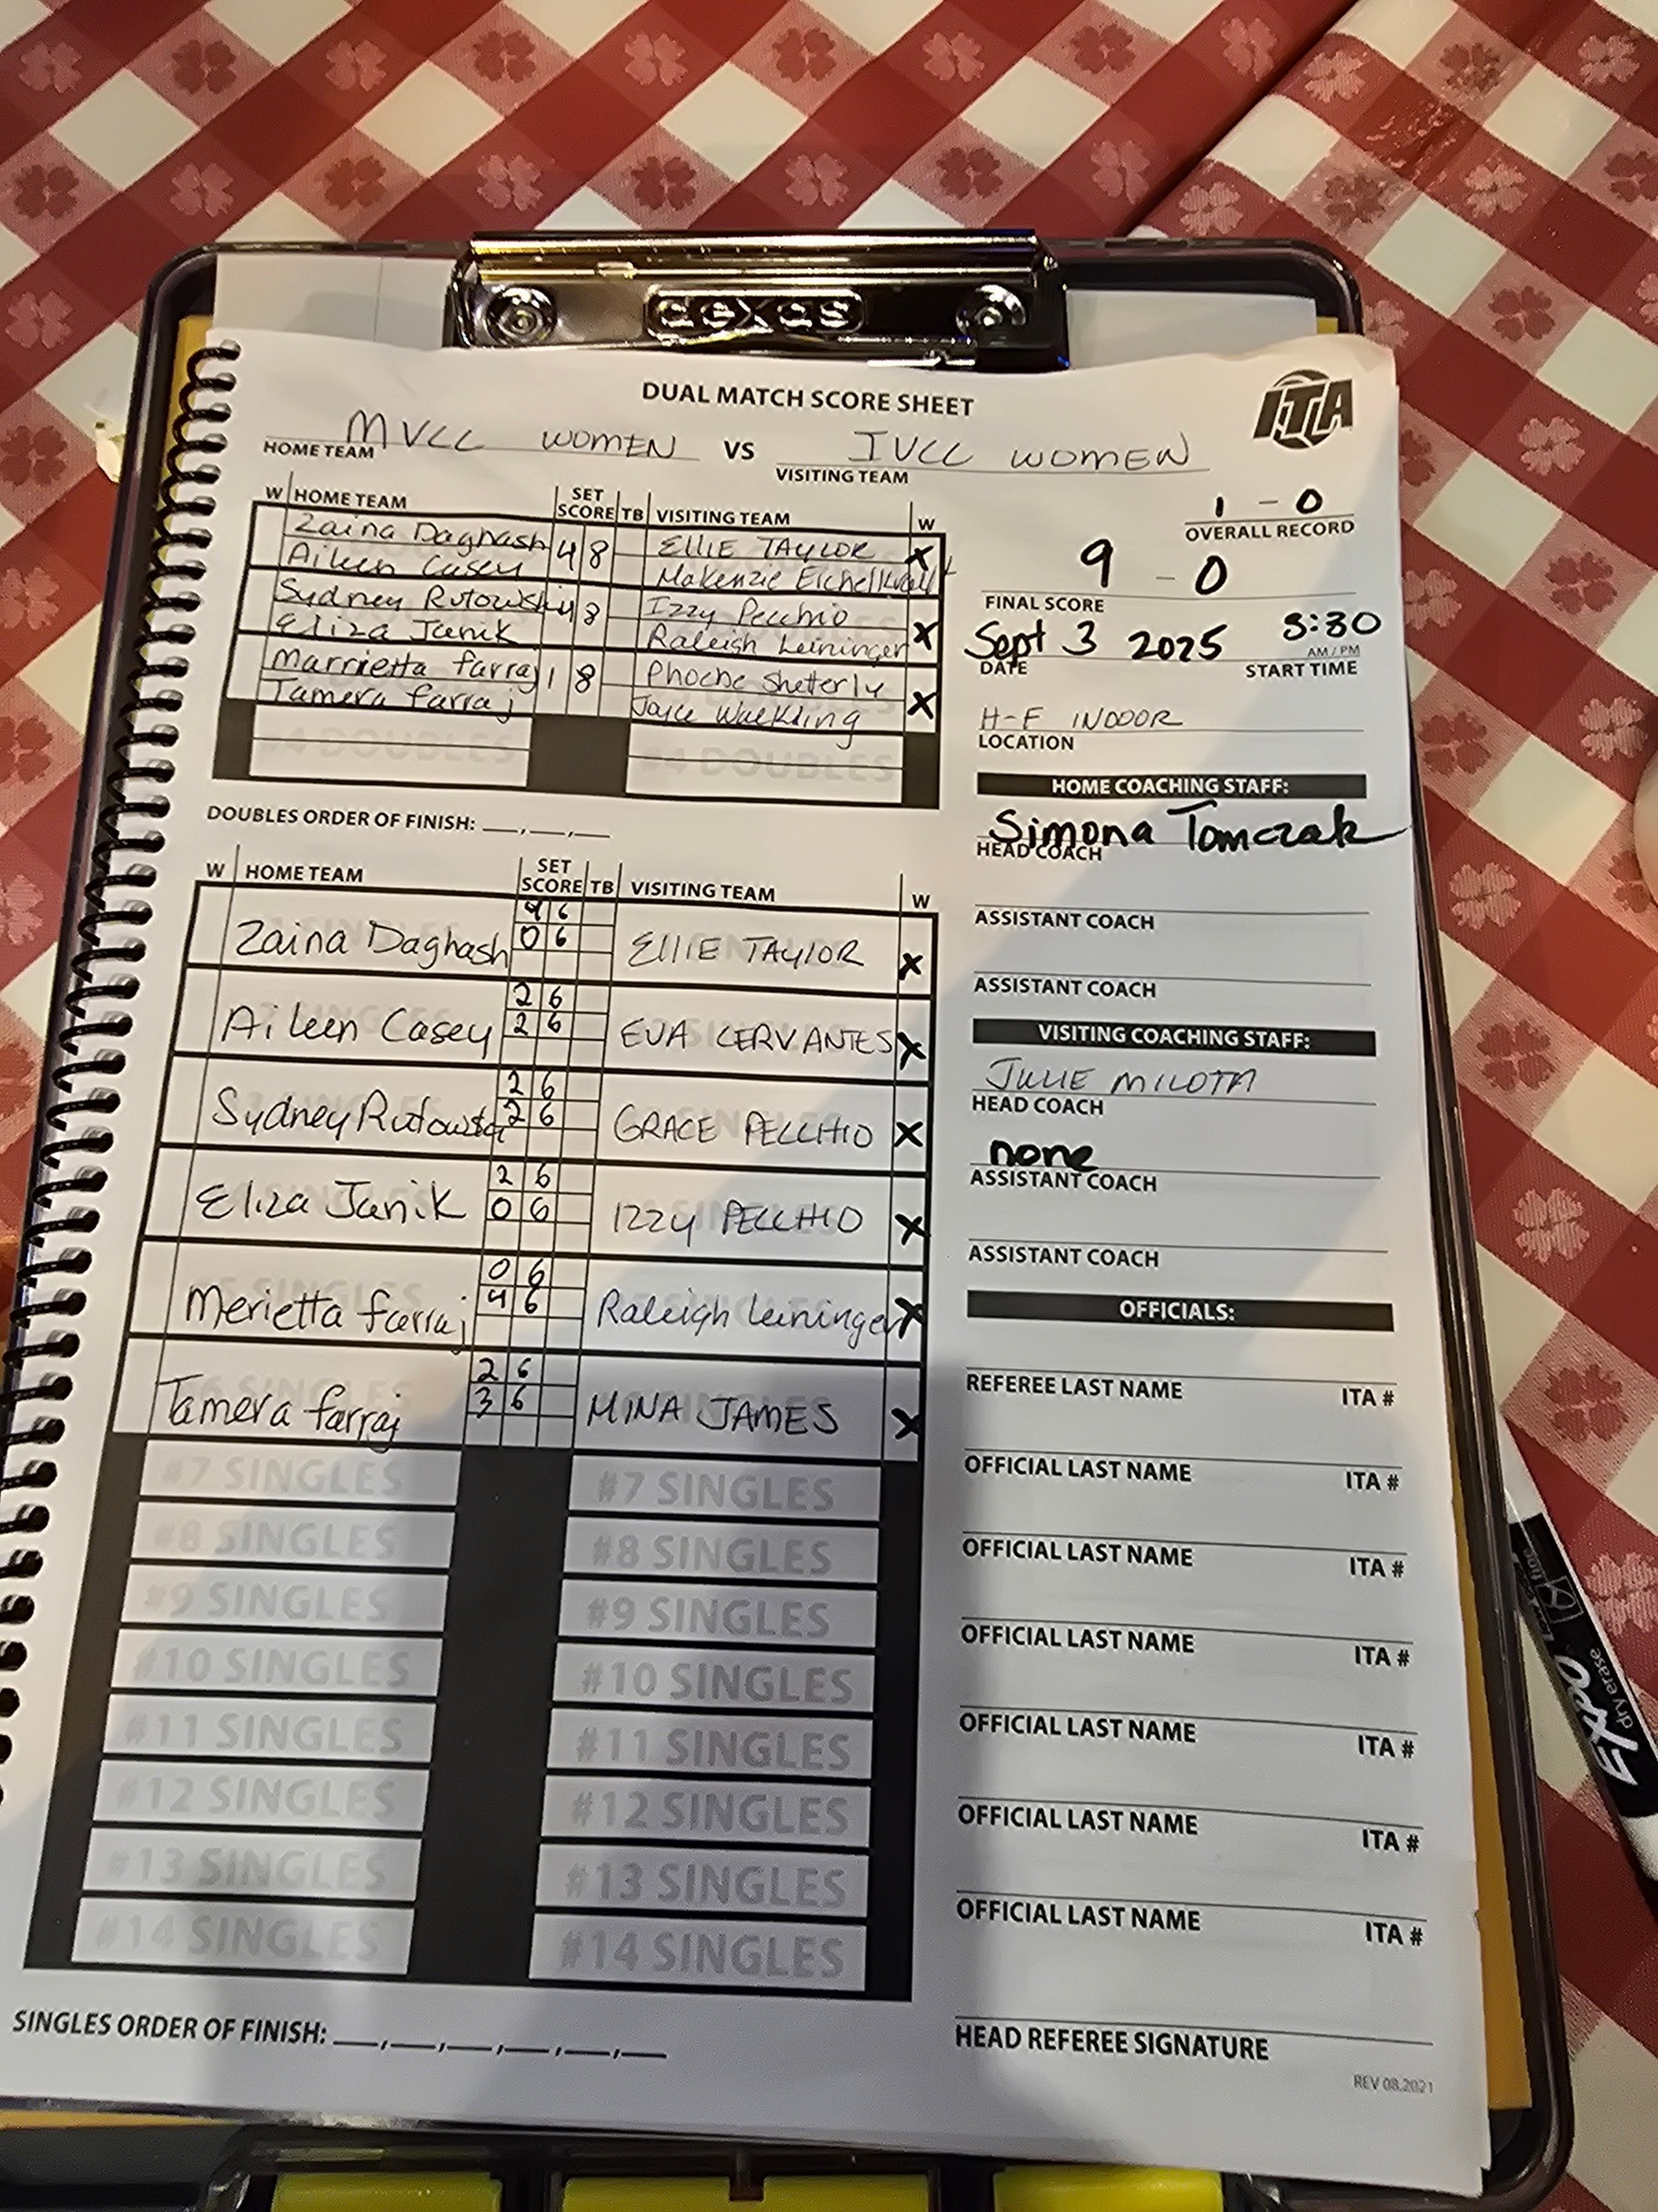 acxas
DUAL MATCH SCORE SHEET
ITA
MVCC WOMEN VS IVCC WOMEN
HOME TEAM VISITING TEAM
1 - 0
OVERALL RECORD
9 - 0
FINAL SCORE
Sept 3 2025 3:30
DATE AM / PM
START TIME
H-F INDOOR
LOCATION
W HOME TEAM SET SCORE TB VISITING TEAM W
Zaina Daghash 4 8 ELLIE TAYLOR X
Aileen Casey Makenzie
Sydney Rutowski 4 8 Izzy Pecchio X
Eliza Janik Raleigh Leininger
Marrietta farraj 1 8 Phoebe Shetterly X
Tamera farraj Joyce Walkling
#4 DOUBLES #4 DOUBLES
DOUBLES ORDER OF FINISH: __,__,__
W HOME TEAM SET SCORE TB VISITING TEAM W
4 6
Zaina Daghash 0 6 ELLIE TAYLOR X
2 6
Aileen Casey 2 6 EVA CERVANTES X
2 6
Sydney Rutowski 2 6 GRACE PECCHIO X
2 6
Eliza Janik 0 6 IZZY PECCHIO X
0 6
Merietta farraj 4 6 Raleigh Leininger X
2 6
Tamera farraj 3 6 MINA JAMES X
#7 SINGLES #7 SINGLES
#8 SINGLES #8 SINGLES
#9 SINGLES #9 SINGLES
#10 SINGLES #10 SINGLES
#11 SINGLES #11 SINGLES
#12 SINGLES #12 SINGLES
#13 SINGLES #13 SINGLES
#14 SINGLES #14 SINGLES
SINGLES ORDER OF FINISH: __,__,__,__,__,__
HOME COACHING STAFF:
Simona Tomczak
HEAD COACH
ASSISTANT COACH
ASSISTANT COACH
VISITING COACHING STAFF:
JULIE MILOTA
HEAD COACH
none
ASSISTANT COACH
ASSISTANT COACH
OFFICIALS:
REFEREE LAST NAME ITA #
OFFICIAL LAST NAME ITA #
OFFICIAL LAST NAME ITA #
OFFICIAL LAST NAME ITA #
OFFICIAL LAST NAME ITA #
OFFICIAL LAST NAME ITA #
OFFICIAL LAST NAME ITA #
HEAD REFEREE SIGNATURE
REV 08.2021
EXPO
dry erase